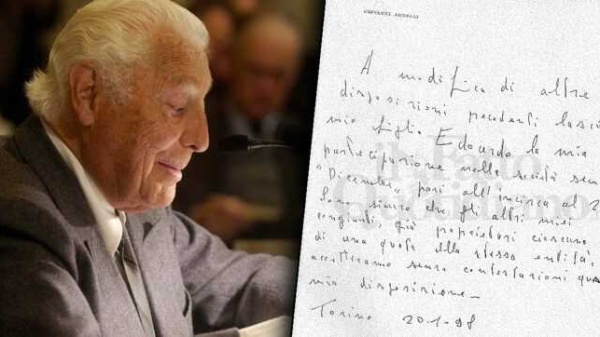 GIOVANNI AGNELLI
A modifica di altre
disposizioni precedenti lasci
mio figlio Edoardo la mia
partecipazione nella società sem
"Dicembre", pari all'incirca al 2
Sono sicuro che gli altri miei
congiunti, già proprietari ciascuno
di una quota della stessa entità,
accetteranno senza contestazioni ques
mia disposizione –
Torino 20-1-98
il Fatto